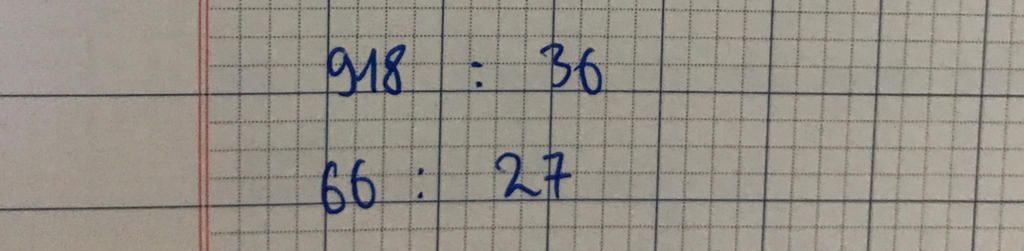 918 : 36
66 : 27